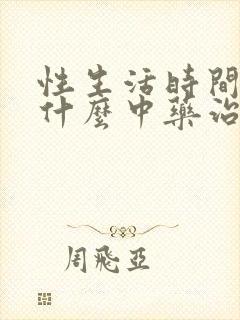 性生活時間
什麼中藥治
周飛亞